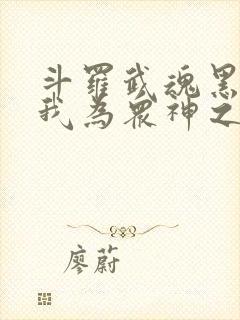 斗羅武魂黑
我為眾神之
廖蔚